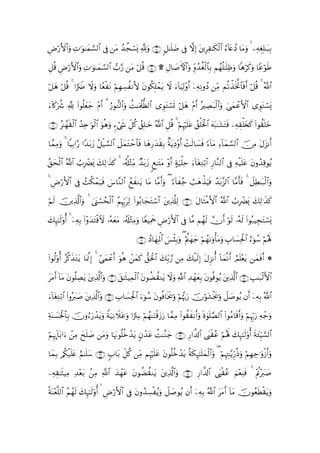 بِبَٰلِغِهِۦ ۚ وَمَا دُعَآءُ ٱلْكَٰفِرِينَ إِلَّا فِى ضَلَٰلٍ ﴿١٤﴾ وَلِلَّهِ يَسْجُدُ مَن فِى ٱلسَّمَٰوَٰتِ وَٱلْأَرْضِ
طَوْعًا وَكَرْهًا وَظِلَٰلُهُم بِٱلْغُدُوِّ وَٱلْءَاصَالِ ۩ ﴿١٥﴾ قُلْ مَن رَّبُّ ٱلسَّمَٰوَٰتِ وَٱلْأَرْضِ قُلِ
ٱللَّهُ ۚ قُلْ أَفَٱتَّخَذْتُم مِّن دُونِهِۦٓ أَوْلِيَآءَ لَا يَمْلِكُونَ لِأَنفُسِهِمْ نَفْعًا وَلَا ضَرًّا ۚ قُلْ هَلْ
يَسْتَوِى ٱلْأَعْمَىٰ وَٱلْبَصِيرُ أَمْ هَلْ تَسْتَوِى ٱلظُّلُمَٰتُ وَٱلنُّورُ ۗ أَمْ جَعَلُوا۟ لِلَّهِ شُرَكَآءَ
خَلَقُوا۟ كَخَلْقِهِۦ فَتَشَٰبَهَ ٱلْخَلْقُ عَلَيْهِمْ ۚ قُلِ ٱللَّهُ خَٰلِقُ كُلِّ شَىْءٍ وَهُوَ ٱلْوَٰحِدُ ٱلْقَهَّٰرُ ﴿١٦﴾
أَنزَلَ مِنَ ٱلسَّمَآءِ مَآءً فَسَالَتْ أَوْدِيَةٌۢ بِقَدَرِهَا فَٱحْتَمَلَ ٱلسَّيْلُ زَبَدًا رَّابِيًا ۚ وَمِمَّا
يُوقِدُونَ عَلَيْهِ فِى ٱلنَّارِ ٱبْتِغَآءَ حِلْيَةٍ أَوْ مَتَٰعٍ زَبَدٌ مِّثْلُهُۥ ۚ كَذَٰلِكَ يَضْرِبُ ٱللَّهُ ٱلْحَقَّ
وَٱلْبَٰطِلَ ۚ فَأَمَّا ٱلزَّبَدُ فَيَذْهَبُ جُفَآءً ۖ وَأَمَّا مَا يَنفَعُ ٱلنَّاسَ فَيَمْكُثُ فِى ٱلْأَرْضِ ۚ
كَذَٰلِكَ يَضْرِبُ ٱللَّهُ ٱلْأَمْثَالَ ﴿١٧﴾ لِلَّذِينَ ٱسْتَجَابُوا۟ لِرَبِّهِمُ ٱلْحُسْنَىٰ ۚ وَٱلَّذِينَ لَمْ
يَسْتَجِيبُوا۟ لَهُۥ لَوْ أَنَّ لَهُم مَّا فِى ٱلْأَرْضِ جَمِيعًا وَمِثْلَهُۥ مَعَهُۥ لَٱفْتَدَوْا۟ بِهِۦٓ ۚ أُو۟لَٰٓئِكَ
لَهُمْ سُوٓءُ ٱلْحِسَابِ وَمَأْوَىٰهُمْ جَهَنَّمُ ۖ وَبِئْسَ ٱلْمِهَادُ ﴿١٨﴾
۞ أَفَمَن يَعْلَمُ أَنَّمَآ أُنزِلَ إِلَيْكَ مِن رَّبِّكَ ٱلْحَقُّ كَمَنْ هُوَ أَعْمَىٰٓ ۚ إِنَّمَا يَتَذَكَّرُ أُو۟لُوا۟
ٱلْأَلْبَٰبِ ﴿١٩﴾ ٱلَّذِينَ يُوفُونَ بِعَهْدِ ٱللَّهِ وَلَا يَنقُضُونَ ٱلْمِيثَٰقَ ﴿٢٠﴾ وَٱلَّذِينَ يَصِلُونَ مَآ أَمَرَ
ٱللَّهُ بِهِۦٓ أَن يُوصَلَ وَيَخْشَوْنَ رَبَّهُمْ وَيَخَافُونَ سُوٓءَ ٱلْحِسَابِ ﴿٢١﴾ وَٱلَّذِينَ صَبَرُوا۟ ٱبْتِغَآءَ
وَجْهِ رَبِّهِمْ وَأَقَامُوا۟ ٱلصَّلَوٰةَ وَأَنفَقُوا۟ مِمَّا رَزَقْنَٰهُمْ سِرًّا وَعَلَانِيَةً وَيَدْرَءُونَ بِٱلْحَسَنَةِ
ٱلسَّيِّئَةَ أُو۟لَٰٓئِكَ لَهُمْ عُقْبَى ٱلدَّارِ ﴿٢٢﴾ جَنَّٰتُ عَدْنٍ يَدْخُلُونَهَا وَمَن صَلَحَ مِنْ ءَابَآئِهِمْ
وَأَزْوَٰجِهِمْ وَذُرِّيَّٰتِهِمْ ۖ وَٱلْمَلَٰٓئِكَةُ يَدْخُلُونَ عَلَيْهِم مِّن كُلِّ بَابٍ ﴿٢٣﴾ سَلَٰمٌ عَلَيْكُم بِمَا
صَبَرْتُمْ ۚ فَنِعْمَ عُقْبَى ٱلدَّارِ ﴿٢٤﴾ وَٱلَّذِينَ يَنقُضُونَ عَهْدَ ٱللَّهِ مِنۢ بَعْدِ مِيثَٰقِهِۦ
وَيَقْطَعُونَ مَآ أَمَرَ ٱللَّهُ بِهِۦٓ أَن يُوصَلَ وَيُفْسِدُونَ فِى ٱلْأَرْضِ ۙ أُو۟لَٰٓئِكَ لَهُمُ ٱللَّعْنَةُ